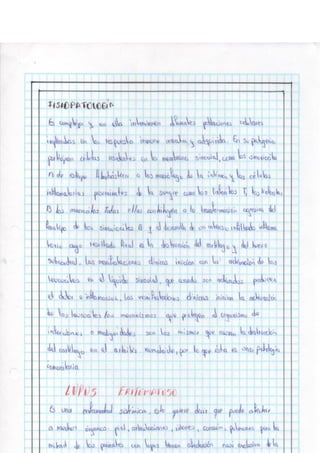 FISIOPATOLOGIA
Es compleja y en ella intervienen diferentes poblaciones celulares
implicadas en la respuesta inmune innata y adquirida. En su patogenia
participan células residentes en la membrana sinovial, como los sinoviocitos
de estirpe fibroblástica o los macrófagos de la íntima y las células
inflamatorias provenientes de la sangre como los linfocitos T, los linfocitos
B los monocitos Todas ellas contribuyen a la transformación agresiva del
fenotipo de los sinoviocitos B y al desarrollo de un intenso infiltrado inflama
torio cuyo resultado final es la destrucción del cartílago y del hueso
Subcondral. Las manifestaciones clínicas inician con la activación de los
leucocitos en el líquido sinovial, que cuando son activados producen
el dolor e inflamación, Las manifestaciones clínicas inician la activación
de los leucocitos los mecanismos que protegen al organismo de
infecciones o malignidades son los mismos que causan la destrucción
del cartílago en el artritis reumatoide, por lo que ésta es una patología
LUPUS ERITEMATOSO
Es una enfermedad sistémica, esto quiere decir que puede afectar
a muchos órganos: piel, articulaciones, riñones, corazón, pulmones pero la
mitad de los pacientes con lupus tienen afectación casi exclusiva de la